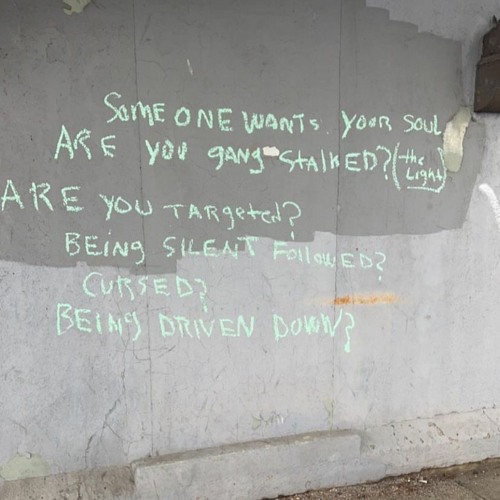 SomE ONE WANTS YOUR SOUL
ARE YOU gANg STALKED? (the Light)
ARE YOU TARgeted?
BEINg SILENT FOllOWED?
CURSED?
BEINg DRIVEN DOWN?